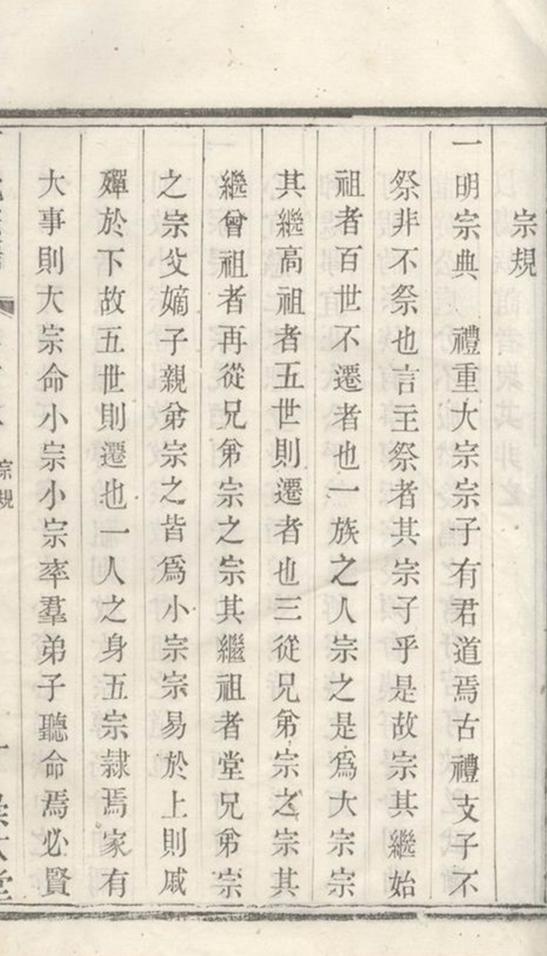 宗規
一明宗典　禮重大宗宗子有君道焉古禮支子不
祭非不祭也言主祭者其宗子乎是故宗其繼始
祖者百世不遷者也一族之人宗之是爲大宗宗
其繼高祖者五世則遷者也三從兄弟宗之宗其
繼曾祖者再從兄弟宗之宗其繼祖者堂兄弟宗
之宗父嫡子親弟宗之皆爲小宗宗易於上則戚
殫於下故五世則遷也一人之身五宗隸焉家有
大事則大宗命小宗小宗率羣弟子聽命焉必賢
宗規